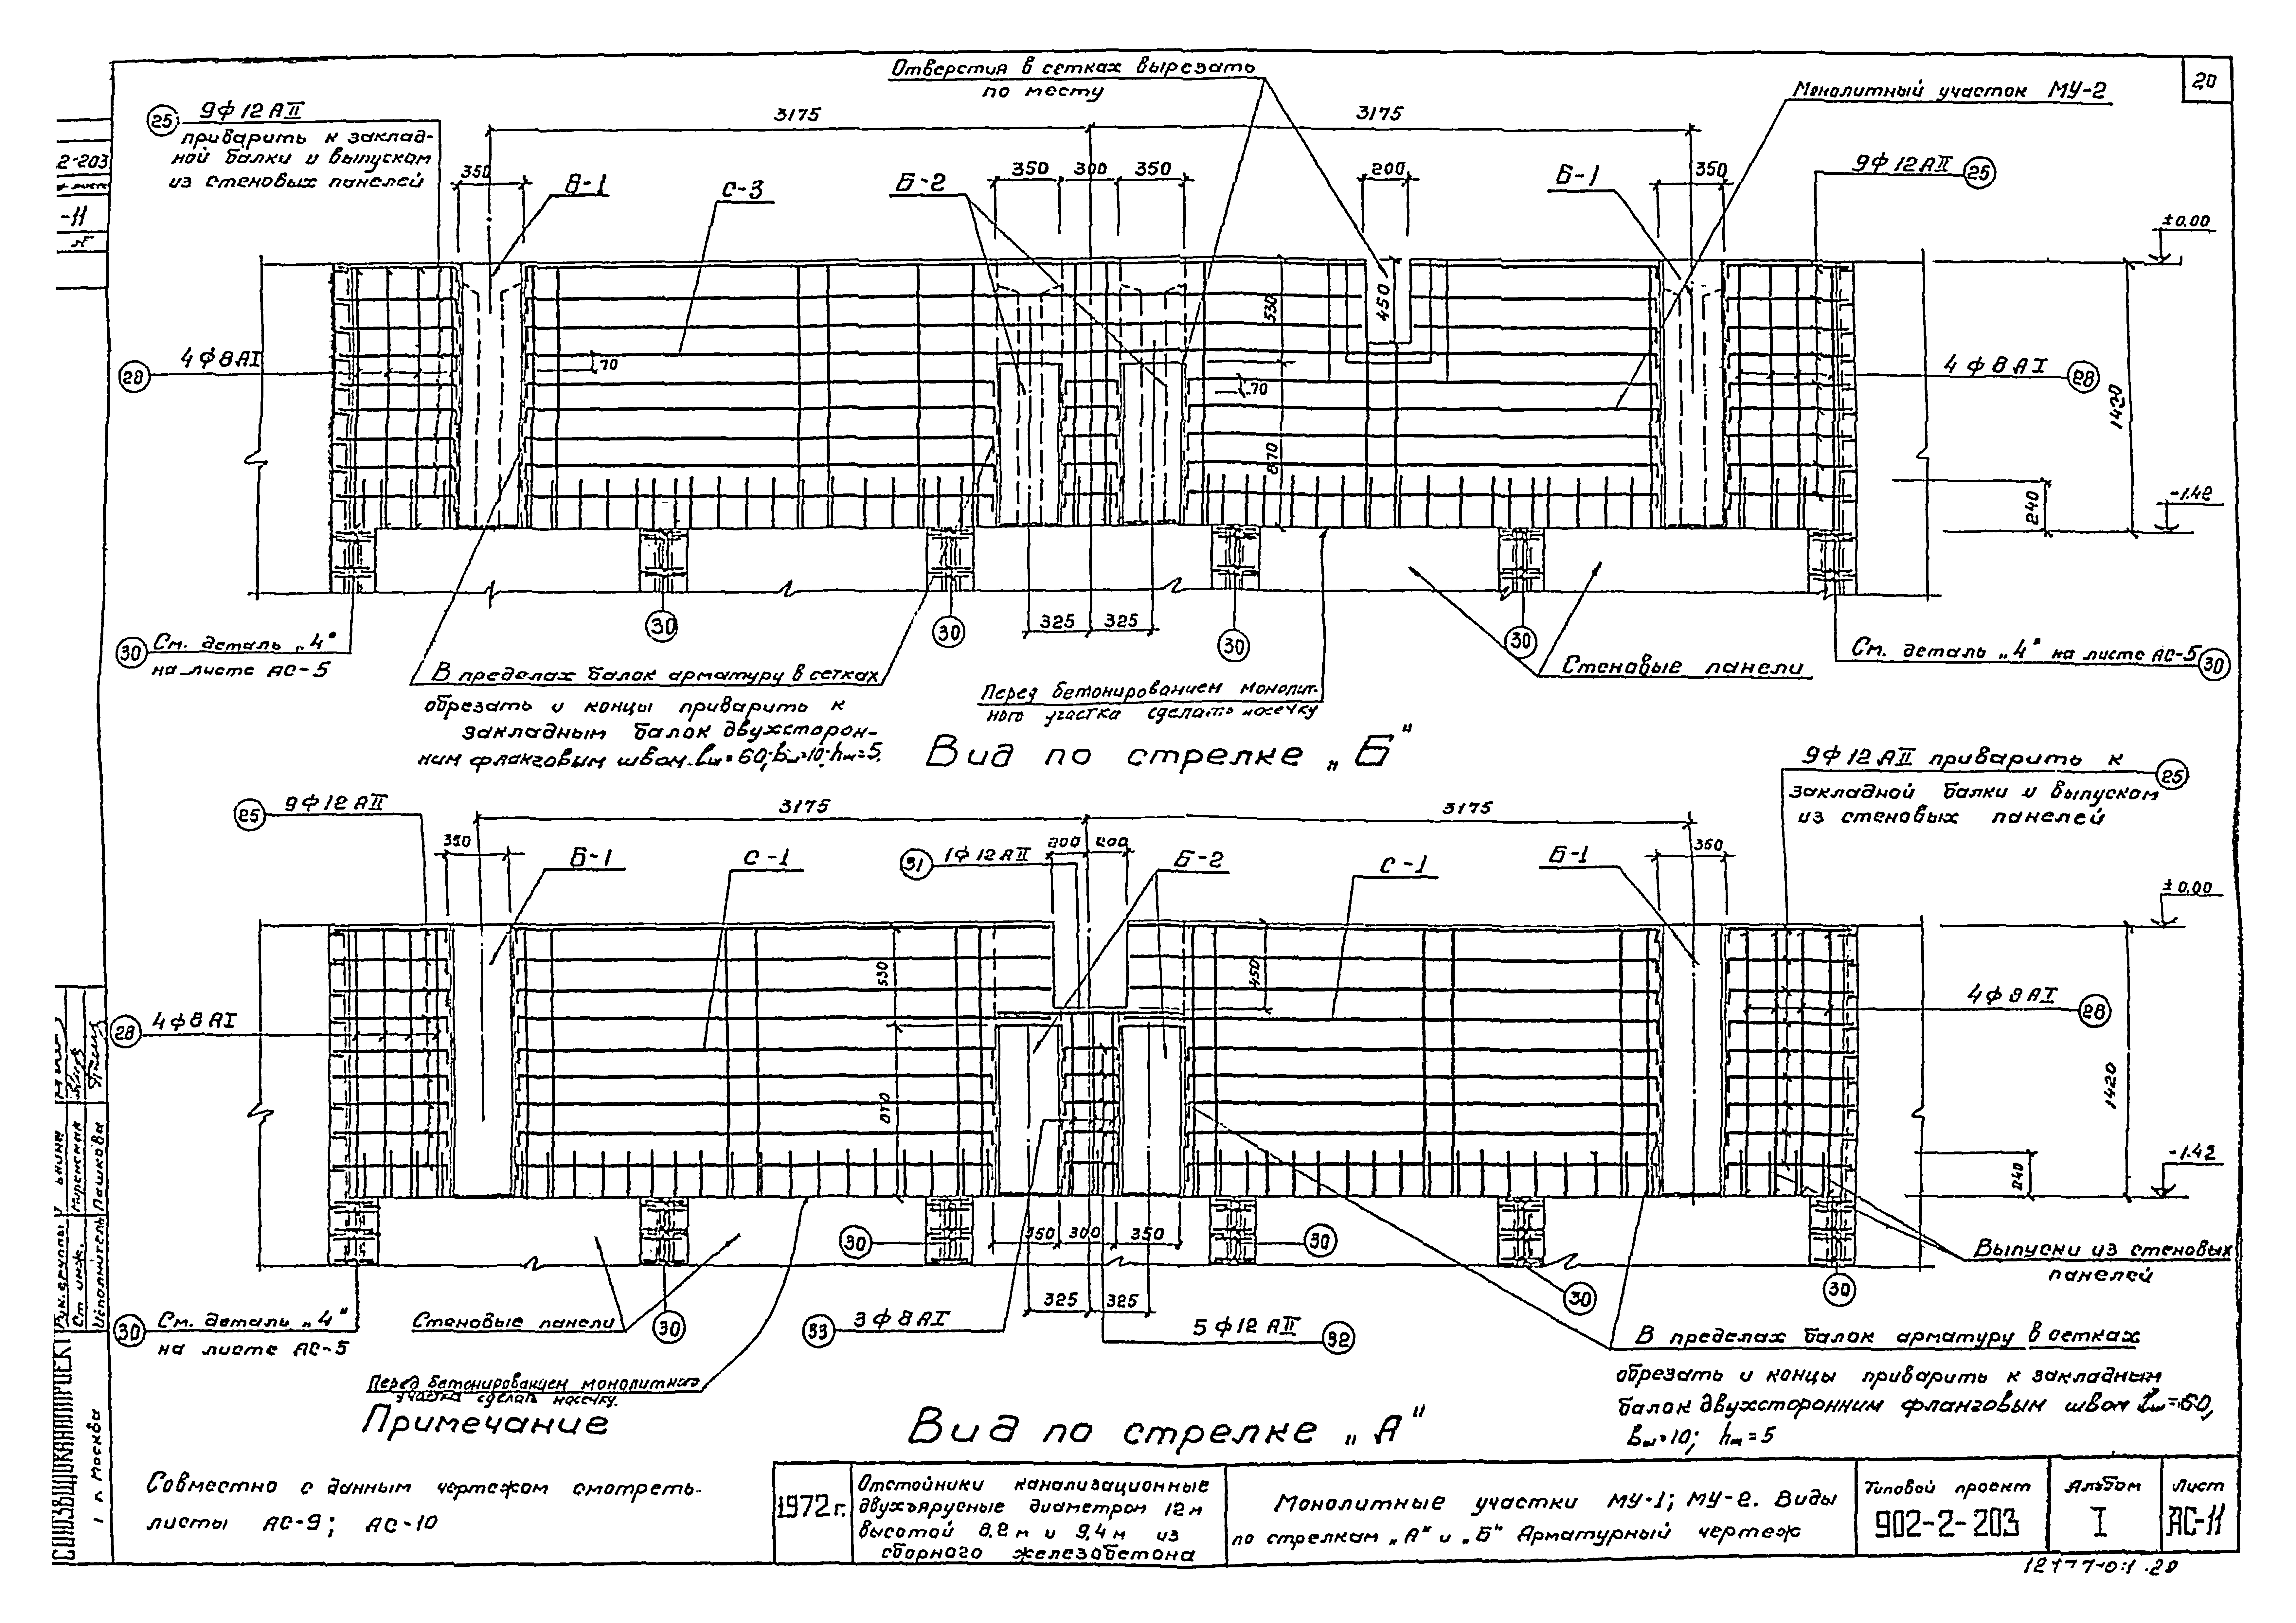 20
Отверстия в сетках вырезать
по месту
Монолитный участок МУ-2
25
9ф12АII
приварить к заклад-
ной балки и выпуском
из стеновых панелей
3175
3175
350
Б-1
С-3
Б-2
350
300
350
200
Б-1
350
9ф12АII
25
±0.00
2-203
-11
450
530
28
4ф8АI
70
70
4ф8АI
28
1420
870
240
-1.42
30
30
30
30
30 См. деталь „4"
на листе АС-5
325
325
См. деталь „4" на листе АС-5
30
В пределах балок арматуру в сетках
обрезать и концы приварить к
закладным балок двухсторон-
ним фланговым швом lш=60; bш=10; hш=5.
Перед бетонированием монолит-
ного участка сделать насечку
Стеновые панели
Вид по стрелке „Б"
9ф12АII приварить к
25
закладной балки и выпуском
из стеновых панелей
25
9ф12АII
3175
3175
350
Б-1
С-1
31
1ф12АII
200
200
Б-2
С-1
Б-1
350
±0.00
530
450
28
4ф8АI
4ф8АI
28
870
1420
240
-1.42
30
350
300
350
30
30
30
Выпуски из стеновых
панелей
30 См. деталь „4"
на листе АС-5
Стеновые панели
30
33
3ф8АI
325
325
5ф12АII
32
В пределах балок арматуру в сетках
обрезать и концы приварить к закладным
балок двухсторонним фланговым швом lш=60,
bш=10; hш=5
Перед бетонированием монолитного
участка сделать насечку.
Примечание
Вид по стрелке „А"
Совместно с данным чертежом смотреть-
листы АС-9; АС-10
1972г.
Отстойники канализационные
двухъярусные диаметром 12м
высотой 8,2м и 9,4м из
сборного железобетона
Монолитные участки МУ-1; МУ-2. Виды
по стрелкам „А" и „Б" Арматурный чертеж
Типовой проект
902-2-203
Альбом
I
Лист
АС-11
Рук. группы
Ст. инж.
Исполнитель
Пашкова
СОЮЗВОДОКАНАЛПРОЕКТ
г. Москва